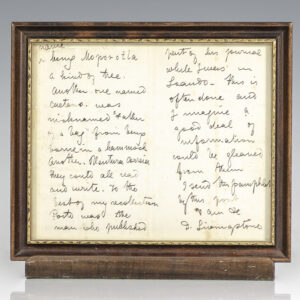 name
being Moporotla
a kind of tree.
Another one named
Caetano was
nicknamed Father
of a bag from being
borne in a hammock
another. Mentura carried
they could all read
and write. To the
best of my recollection
Porto was the
man who published
part of his journal
while I was in
Loando. This is
often done and
I imagine a
good deal of
information
could be gleaned
from them
I send the pamphlet
by this post
I am &c
D. Livingstone